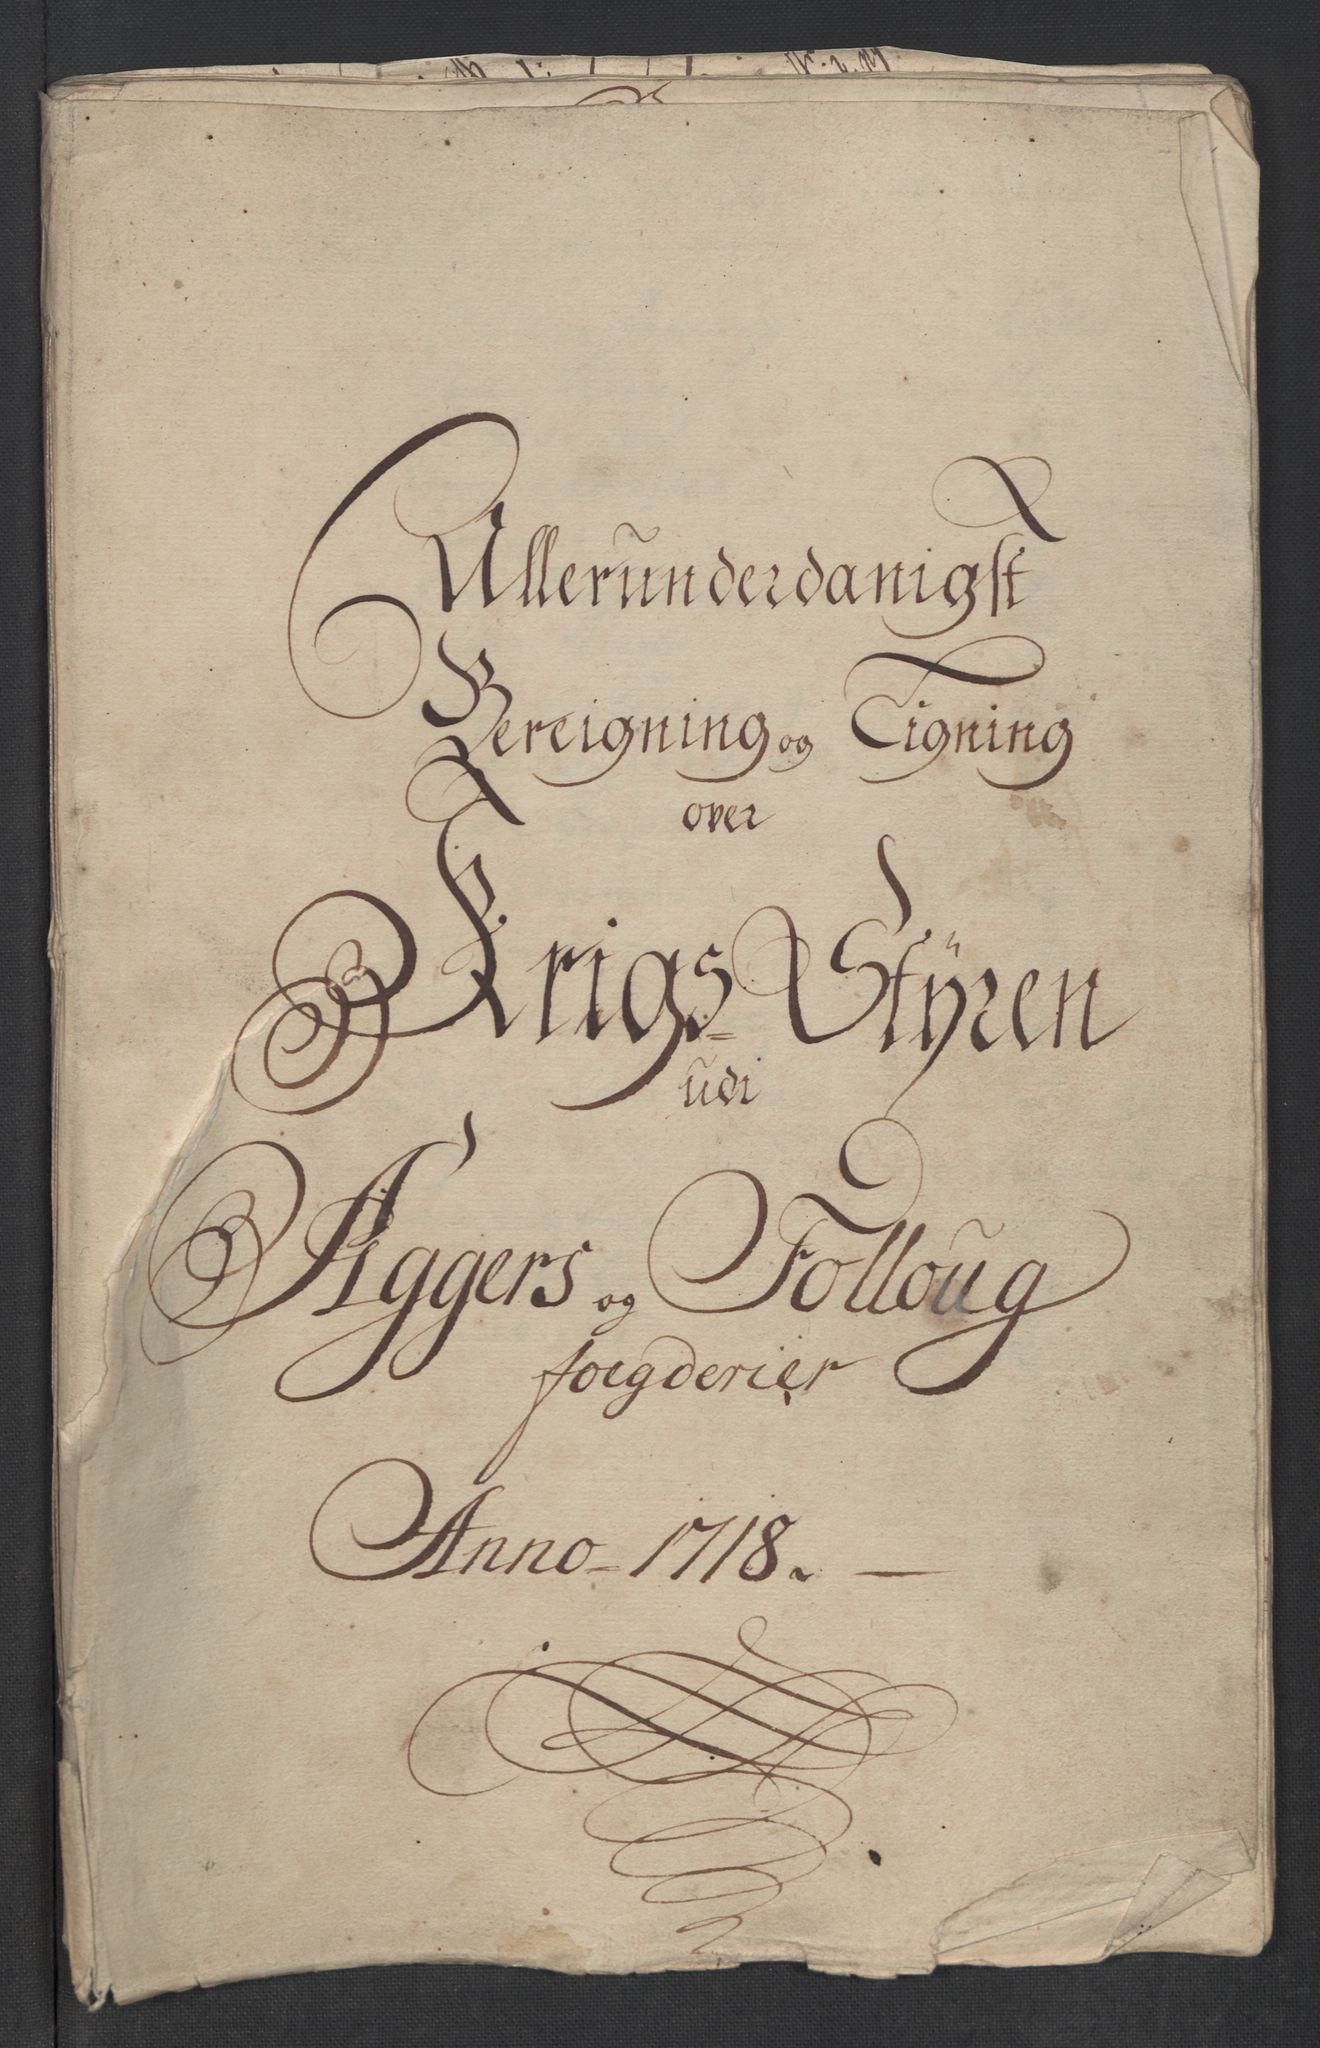 Allerunderdanigst
Bereigning og Ligning
over
Krigs-Styren
udi
Aggers og Folloug
foegderier
Anno-1718.